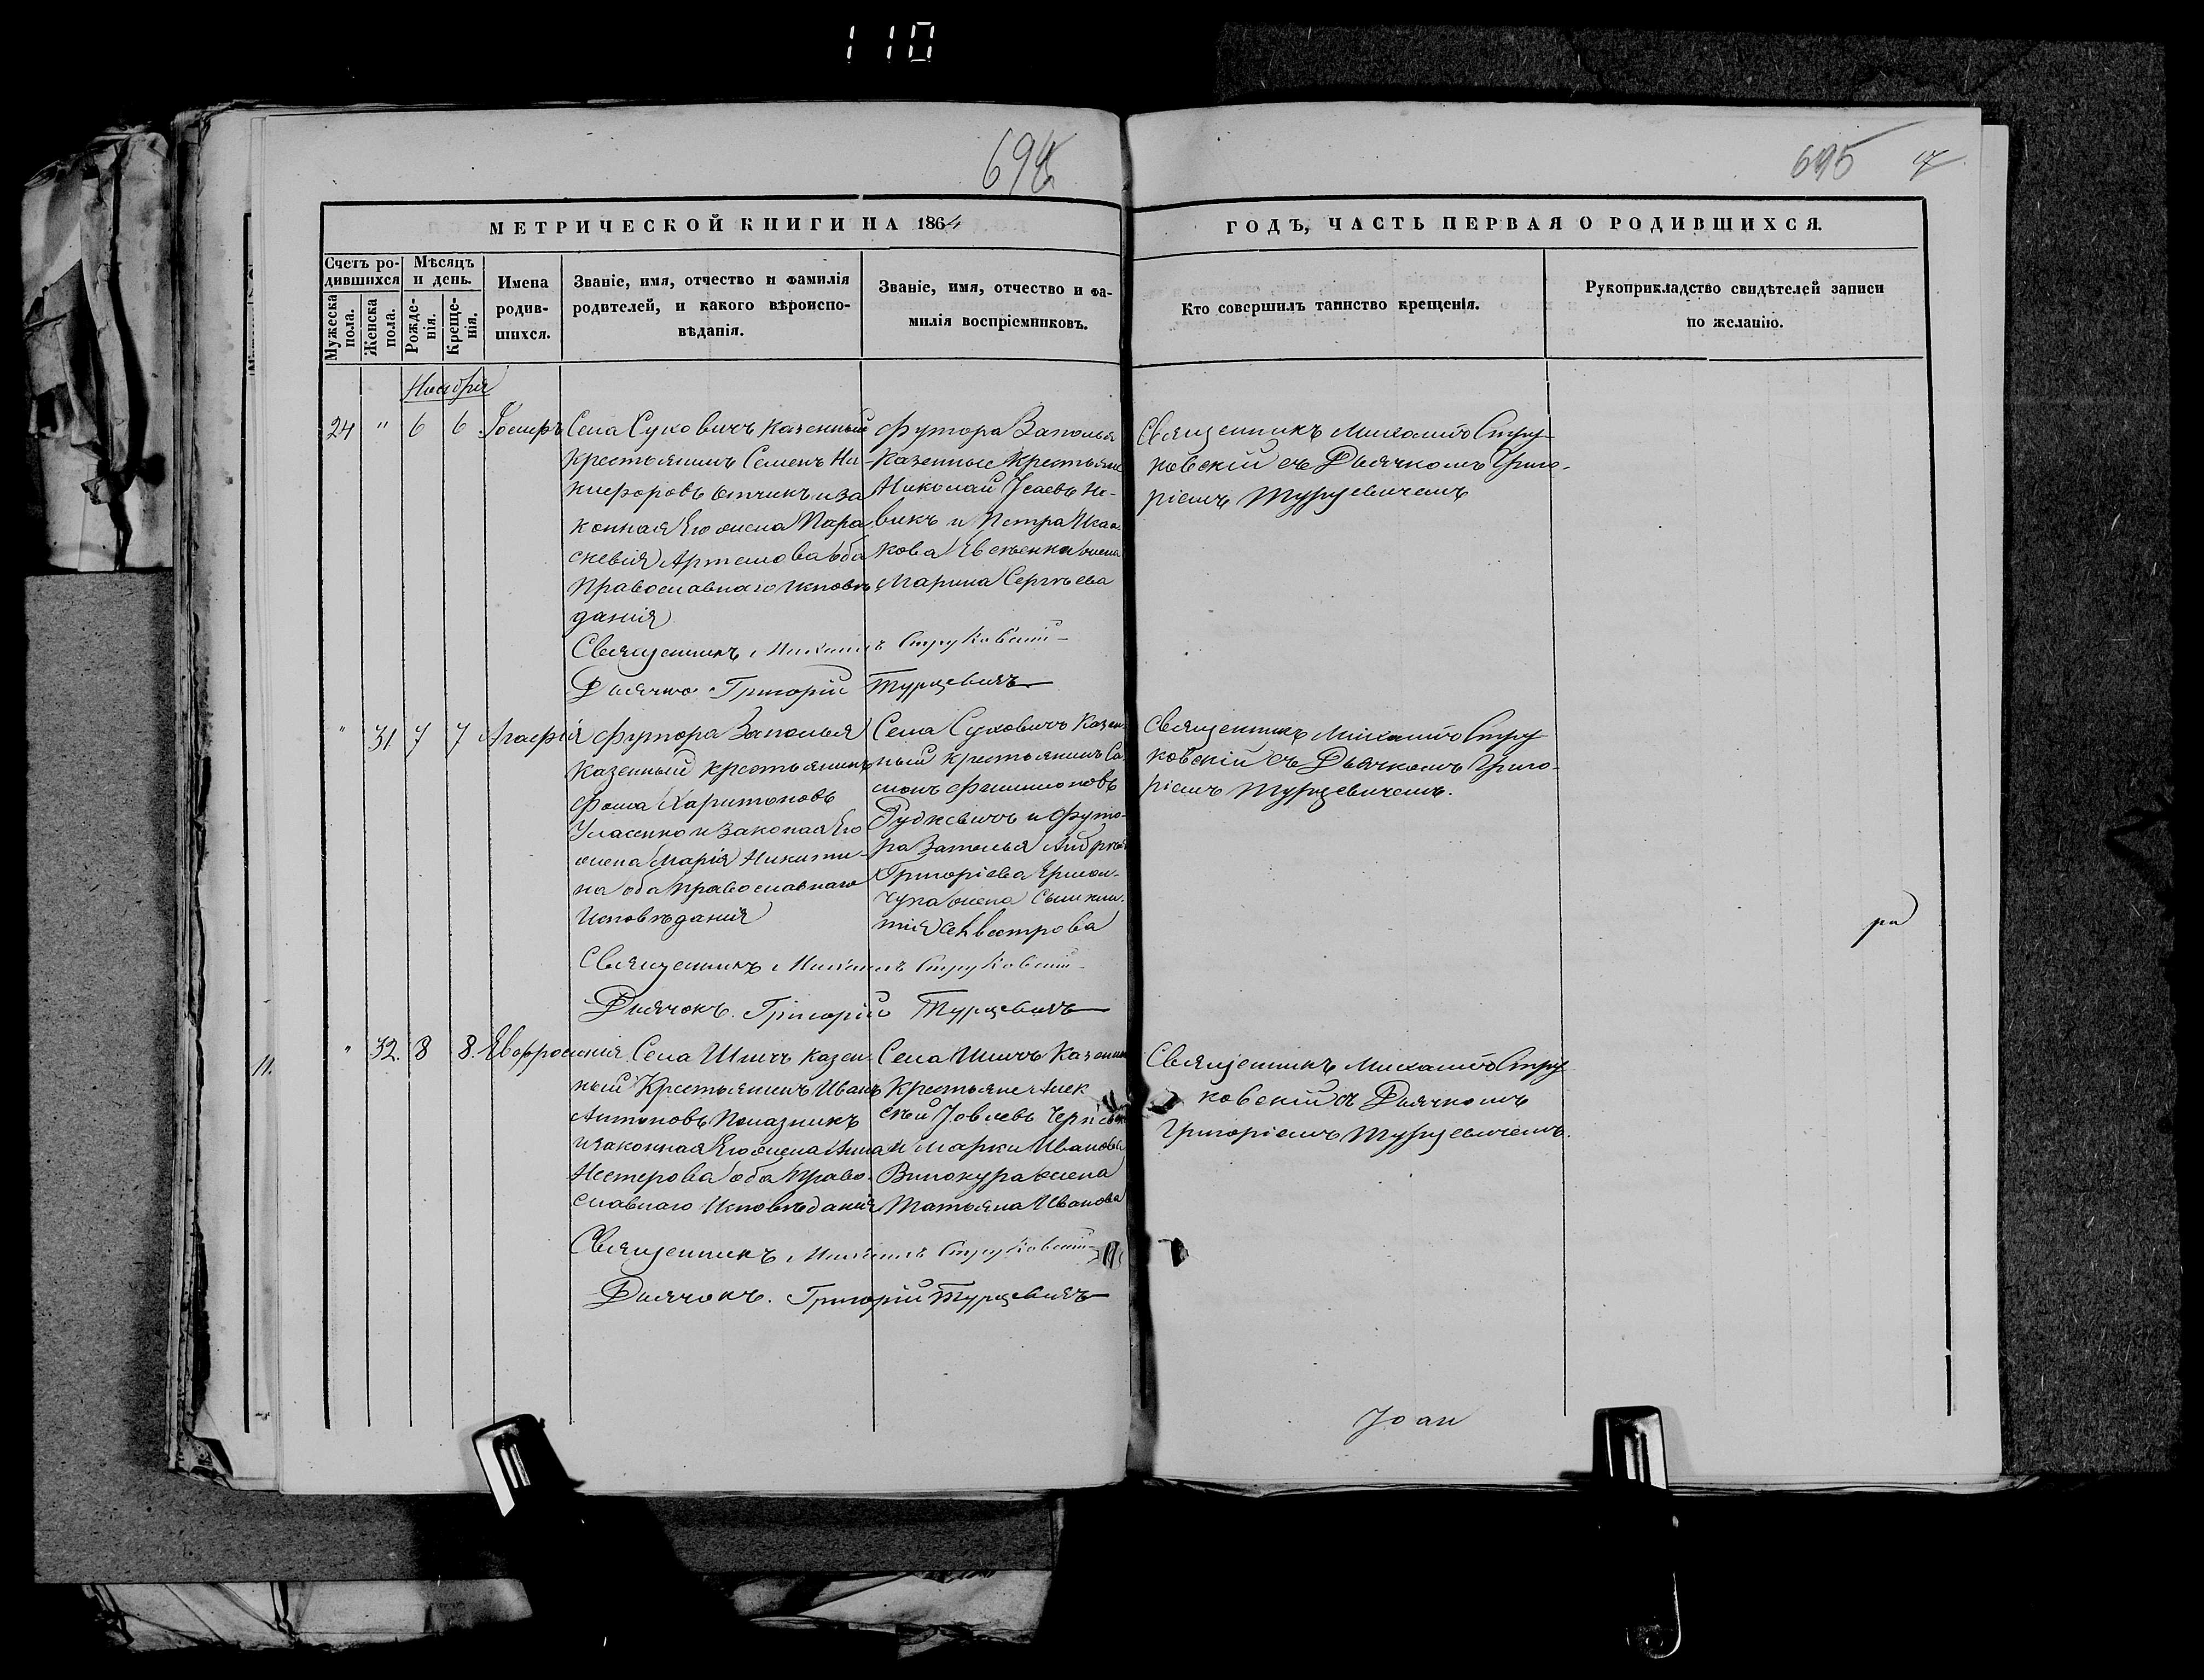 110
695 7
МЕТРИЧЕСКОЙ КНИГИ НА 1864
ГОДЪ, ЧАСТЬ ПЕРВАЯ О РОДИВШИХСЯ.
Счетъ ро-
дившихся
Мужеска
пола.
Женска
пола.
Мѣсяцъ
и день.
Рожде-
нія.
Креще-
нія.
Имена
родив-
шихся.
Званіе, имя, отчество и фамилія
родителей, и какого вѣроиспо-
вѣданія.
Званіе, имя, отчество и фа-
милія воспріемниковъ.
Кто совершилъ таинство крещенія.
Рукоприкладство свидѣтелей записи
по желанію.
Ноября
24 " 6 6 Іосифъ
Села Суховичъ казенный
крестьянинъ Семенъ Ни-
кифоровъ и за
конная Его жена Пара
скевія Артемова оба
Православнаго исповѣ
данія
Футора Заполья
казенные крестьяне
Николай Исаевъ Но-
викъ и Петра Исаа
кова жена
Марина Сергѣева
Священникъ Михаилъ Стру
ковскій съ Дьячкомъ Григо-
ріемъ Турцевичемъ
Священникъ Михаилъ Струковскій
Дьячокъ Григорій Турцевичъ
" 31 7 7 Агафія
Футора Заполья
казенный крестьянинъ
Фома Харитоновъ
Уласенко и Законая Его
жена Марія Никити-
на оба православнаго
Исповѣданія
Села Суховичъ Казен-
ный крестьянинъ Са-
монъ Филимоновъ
Рудкевичъ и Футо-
ра Заполья Андрѣя
Григоріева Ермол-
чука жена
Селвестрова
Священникъ Михаилъ Стру
ковскій съ Дьячкомъ Григо-
ріемъ Турцевичемъ.
ра
Священникъ Михаилъ Струковскій
Дьячокъ. Григорій Турцевичъ
11.
" 32. 8 8. Евфросинія
Села Шиичъ казен-
ный Крестьянинъ Иванъ
Антоновъ Помазникъ
и законная Его жена Анна
Нестерова оба Право-
славнаго Исповѣданія
Села Шиичъ Казенные
Крестьяне Алек
сѣй Іовлевъ
и Марки Иванова
Винокура жена
Татьяна Иванова
Священникъ Михаилъ Стру
ковскій съ Дьячкомъ
Григоріемъ Турцевичемъ.
Священникъ Михаилъ Струковскій
Дьячокъ. Григорій Турцевичъ
Іоан